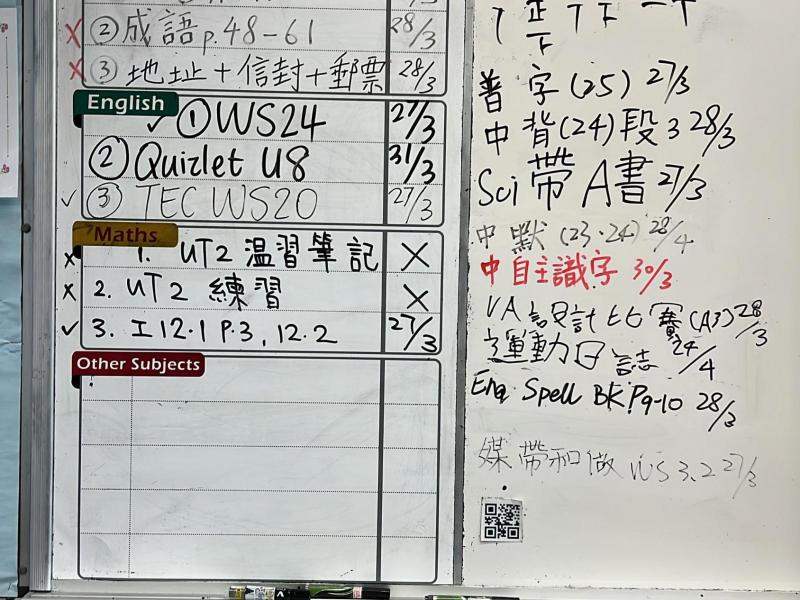 ② 成語 p.48-61 28/3
③ 地址+信封+郵票 28/3
English
① WS24 27/3
② Quizlet U8 31/3
③ TEC WS20 27/3
Maths
1. UT2 温習筆記 X
2. UT2 練習 X
3. 工12.1 P.3, 12.2 27/3
Other Subjects
普字(25) 27/3
中背(24)段3 28/3
Sci帶A書 27/3
中默(23.24) 28/4
中自主識字 30/3
VA設計比賽(A3) 28/3
運動日誌 24/4
Eng Spell BK P9-10 28/3
媒帶和做 WS 3.2 27/3